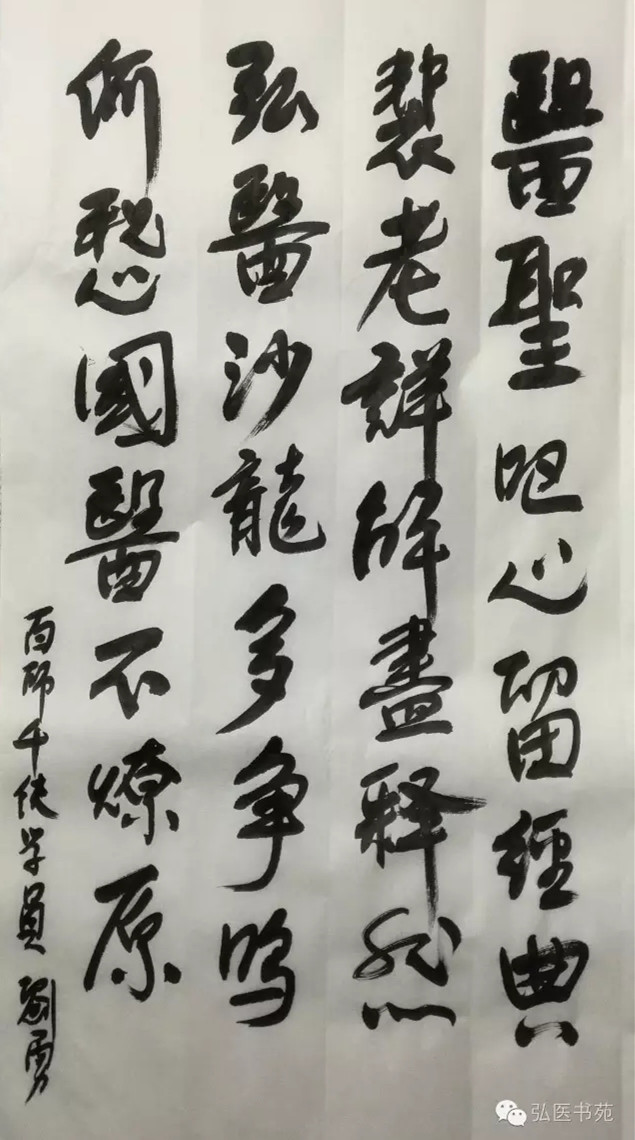 醫聖呕心留經典
裴老詳解盡釋然
弘醫沙龍多争鸣
何愁國醫不燎原
百師千徒学員 劉勇
弘医书苑